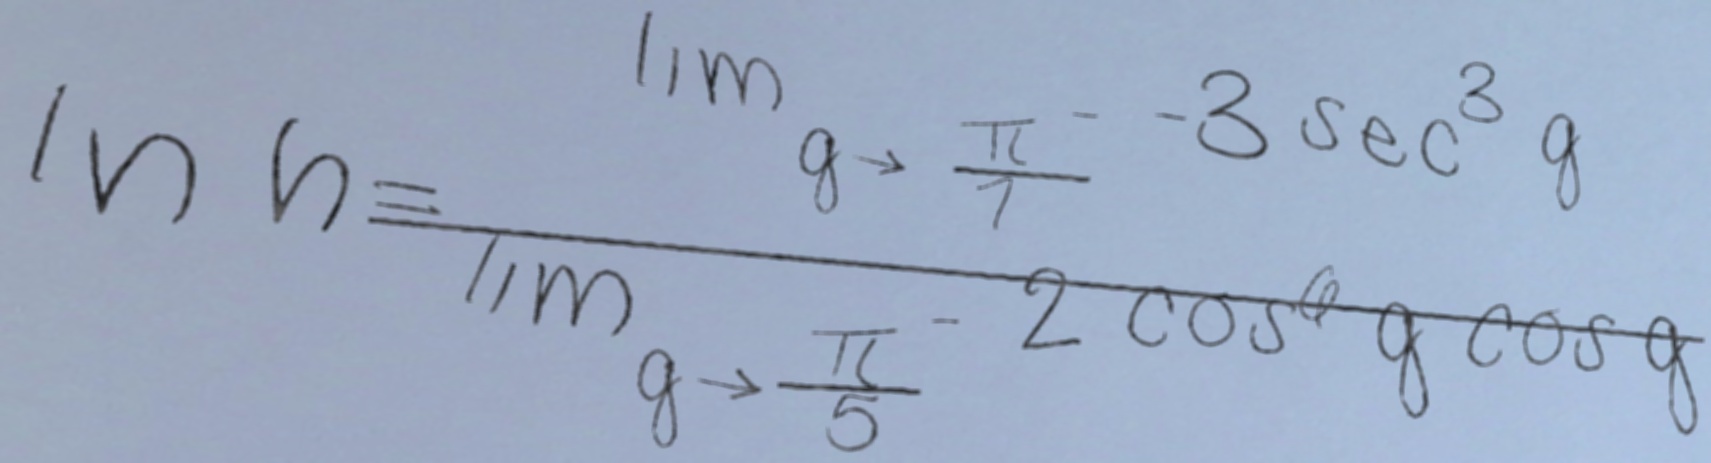 \ln h = \frac{\lim_{g \to \frac{\pi}{7}^{-}} -3 \sec^{3} g}{\lim_{g \to \frac{\pi}{5}^{-}} 2 \cos^{6} g \cos g}